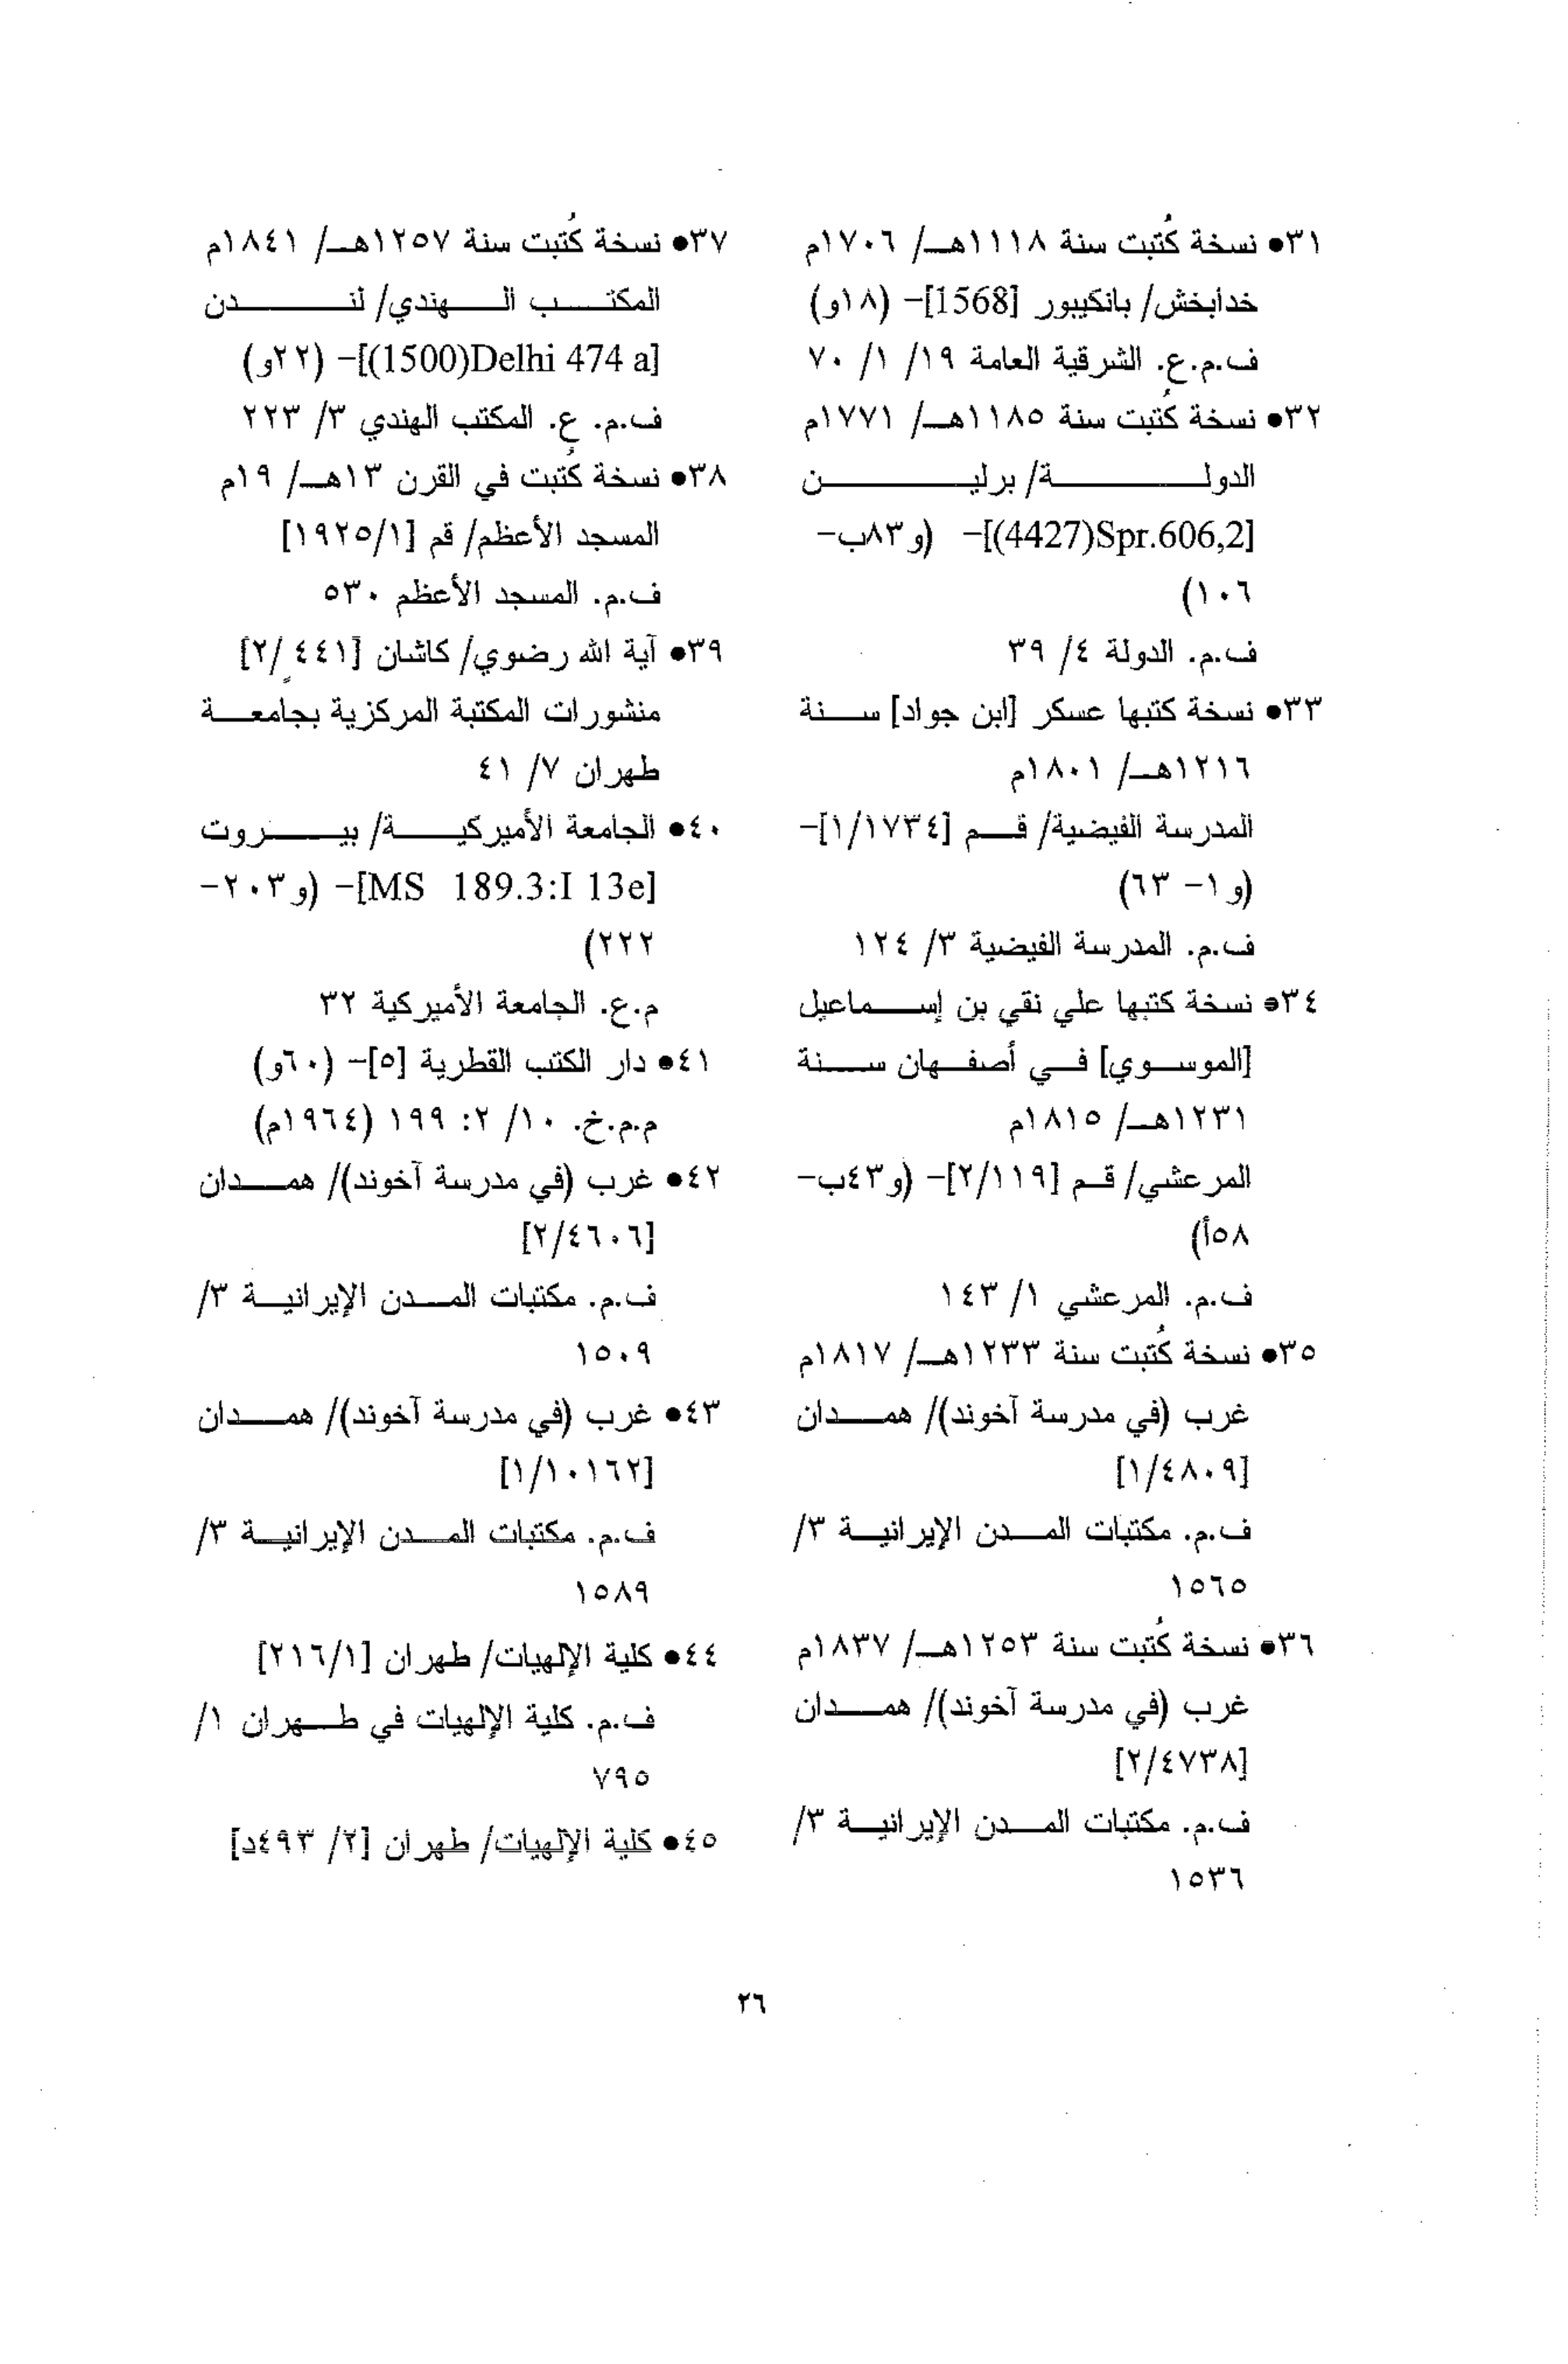 ٣١• نسخة كُتبت سنة ١١١٨هـ/ ١٧٠٦م
خدابخش/ بانكيبور [1568]- (١٨و)
ف.م.ع. الشرقية العامة ١٩/ ١/ ٧٠
٣٢• نسخة كُتبت سنة ١١٨٥هـ/ ١٧٧١م
الدولـــة/ برليـــن
[Spr.606,2(4427)]- (و٨٣ب-
١٠٦)
ف.م. الدولة ٤/ ٣٩
٣٣• نسخة كتبها عسكر [ابن جواد] سـنة
١٢١٦هـ/ ١٨٠١م
المدرسة الفيضية/ قـم [١/١٧٣٤]-
(و١- ٦٣)
ف.م. المدرسة الفيضية ٣/ ١٢٤
٣٤• نسخة كتبها علي نقي بن إسـماعيل
[الموسـوي] فـي أصفـهان سـنة
١٢٣١هـ/ ١٨١٥م
المرعشي/ قـم [٢/١١٩]- (و٤٣ب-
٥٨أ)
ف.م. المرعشي ١/ ١٤٣
٣٥• نسخة كُتبت سنة ١٢٣٣هـ/ ١٨١٧م
غرب (في مدرسة آخوند)/ همـدان
[١/٤٨٠٩]
ف.م. مكتبات المـدن الإيرانيـة ٣/
١٥٦٥
٣٦• نسخة كُتبت سنة ١٢٥٣هـ/ ١٨٣٧م
غرب (في مدرسة آخوند)/ همـدان
[٢/٤٧٣٨]
ف.م. مكتبات المـدن الإيرانيـة ٣/
١٥٣٦
٣٧• نسخة كُتبت سنة ١٢٥٧هـ/ ١٨٤١م
المكتـب الـهندي/ لنـــدن
[Delhi 474 a(1500)]- (٢٢و)
ف.م. ع. المكتب الهندي ٣/ ٢٢٣
٣٨• نسخة كُتبت في القرن ١٣هـ/ ١٩م
المسجد الأعظم/ قم [١٩٢٥/١]
ف.م. المسجد الأعظم ٥٣٠
٣٩• آية الله رضوي/ كاشان [٤٤١ /٢]
منشورات المكتبة المركزية بجامعـة
طهران ٧/ ٤١
٤٠• الجامعة الأميركيـة/ بيـروت
[MS 189.3:I 13e]- (و٢٠٣-
٢٢٢)
م.ع. الجامعة الأميركية ٣٢
٤١• دار الكتب القطرية [٥]- (٦٠و)
م.م.خ. ١٠/ ٢: ١٩٩ (١٩٦٤م)
٤٢• غرب (في مدرسة آخوند)/ همـدان
[٢/٤٦٠٦]
ف.م. مكتبات المـدن الإيرانيـة ٣/
١٥٠٩
٤٣• غرب (في مدرسة آخوند)/ همـدان
[١/١٠١٦٢]
ف.م. مكتبات المـدن الإيرانيـة ٣/
١٥٨٩
٤٤• كلية الإلهيات/ طهران [٢١٦/١]
ف.م. كلية الإلهيات في طـهران ١/
٧٩٥
٤٥• كلية الإلهيات/ طهران [٢/ ٤٩٣د]
٢٦